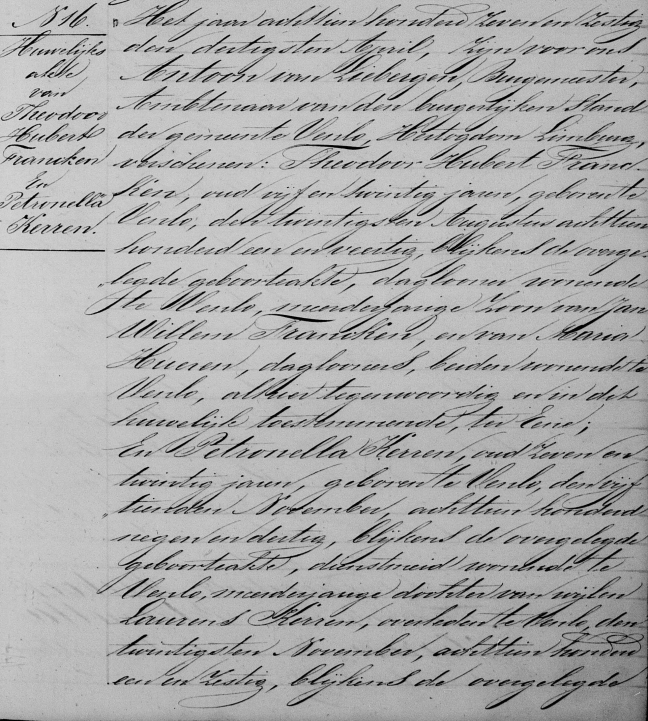 N 16.
Huwelijks
akte
van
Theodoor
Hubert
Francken
En
Petronella
Kerren.
Het jaar achttien honderd Zeven en Zestig
den dertigsten April, Zijn voor ons
Antoon van Liebergen, Burgemeester,
Ambtenaar van den burgerlijken Stand
der gemeente Venlo, Hertogdom Limburg,
verschenen: Theodoor Hubert Franc-
ken, oud vijf en twintig jaren, geboren te
Venlo, den twintigsten Augustus achttien
honderd een en veertig, blijkens de overge-
legde geboorteakte, daglooner wonende
te Venlo, meerderjarige Zoon van Jan
Willem Francken, en van Maria
Hueren, daglooners, beiden wonende te
Venlo, alhier tegenwoordig en in dit
huwelijk toestemmende, ter Eene;
En Petronella Kerren, oud Zeven en
twintig jaren, geboren te Venlo, den vijf
tienden November, achttien honderd
negen en dertig, blijkens de overgelegde
geboorteakte, dienstmeid wonende te
Venlo, meerderjarige dochter van wijlen
Laurens Kerren, overleden te Venlo, den
twintigsten November, achttien honderd
een en Zestig, blijkens de overgelegde